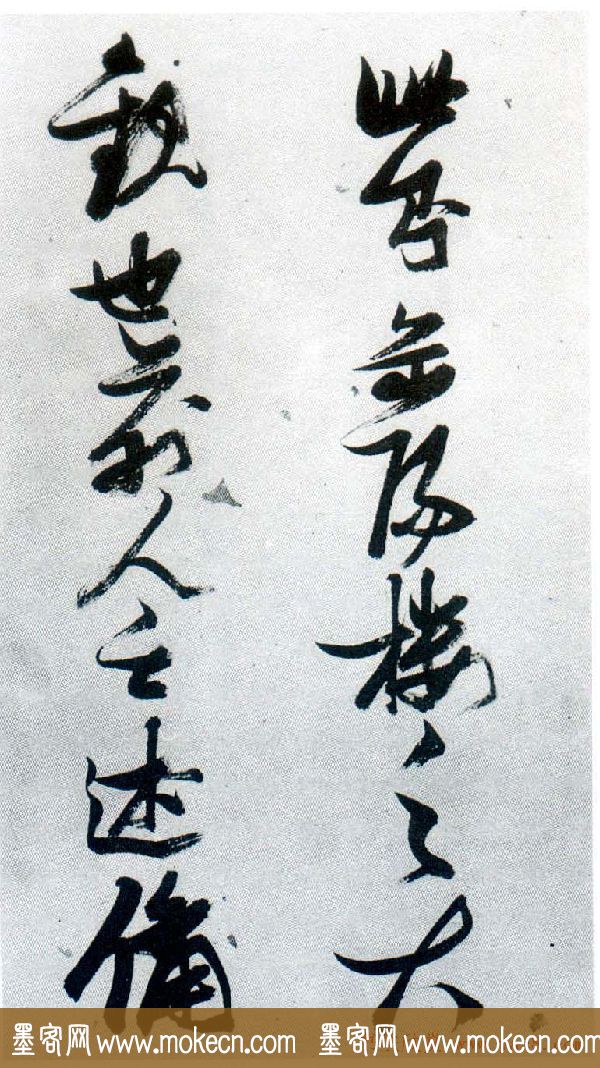 此則岳陽樓之大
觀也前人之述備
墨客网 www.mokecn.com 墨客网 www.mokecn.com